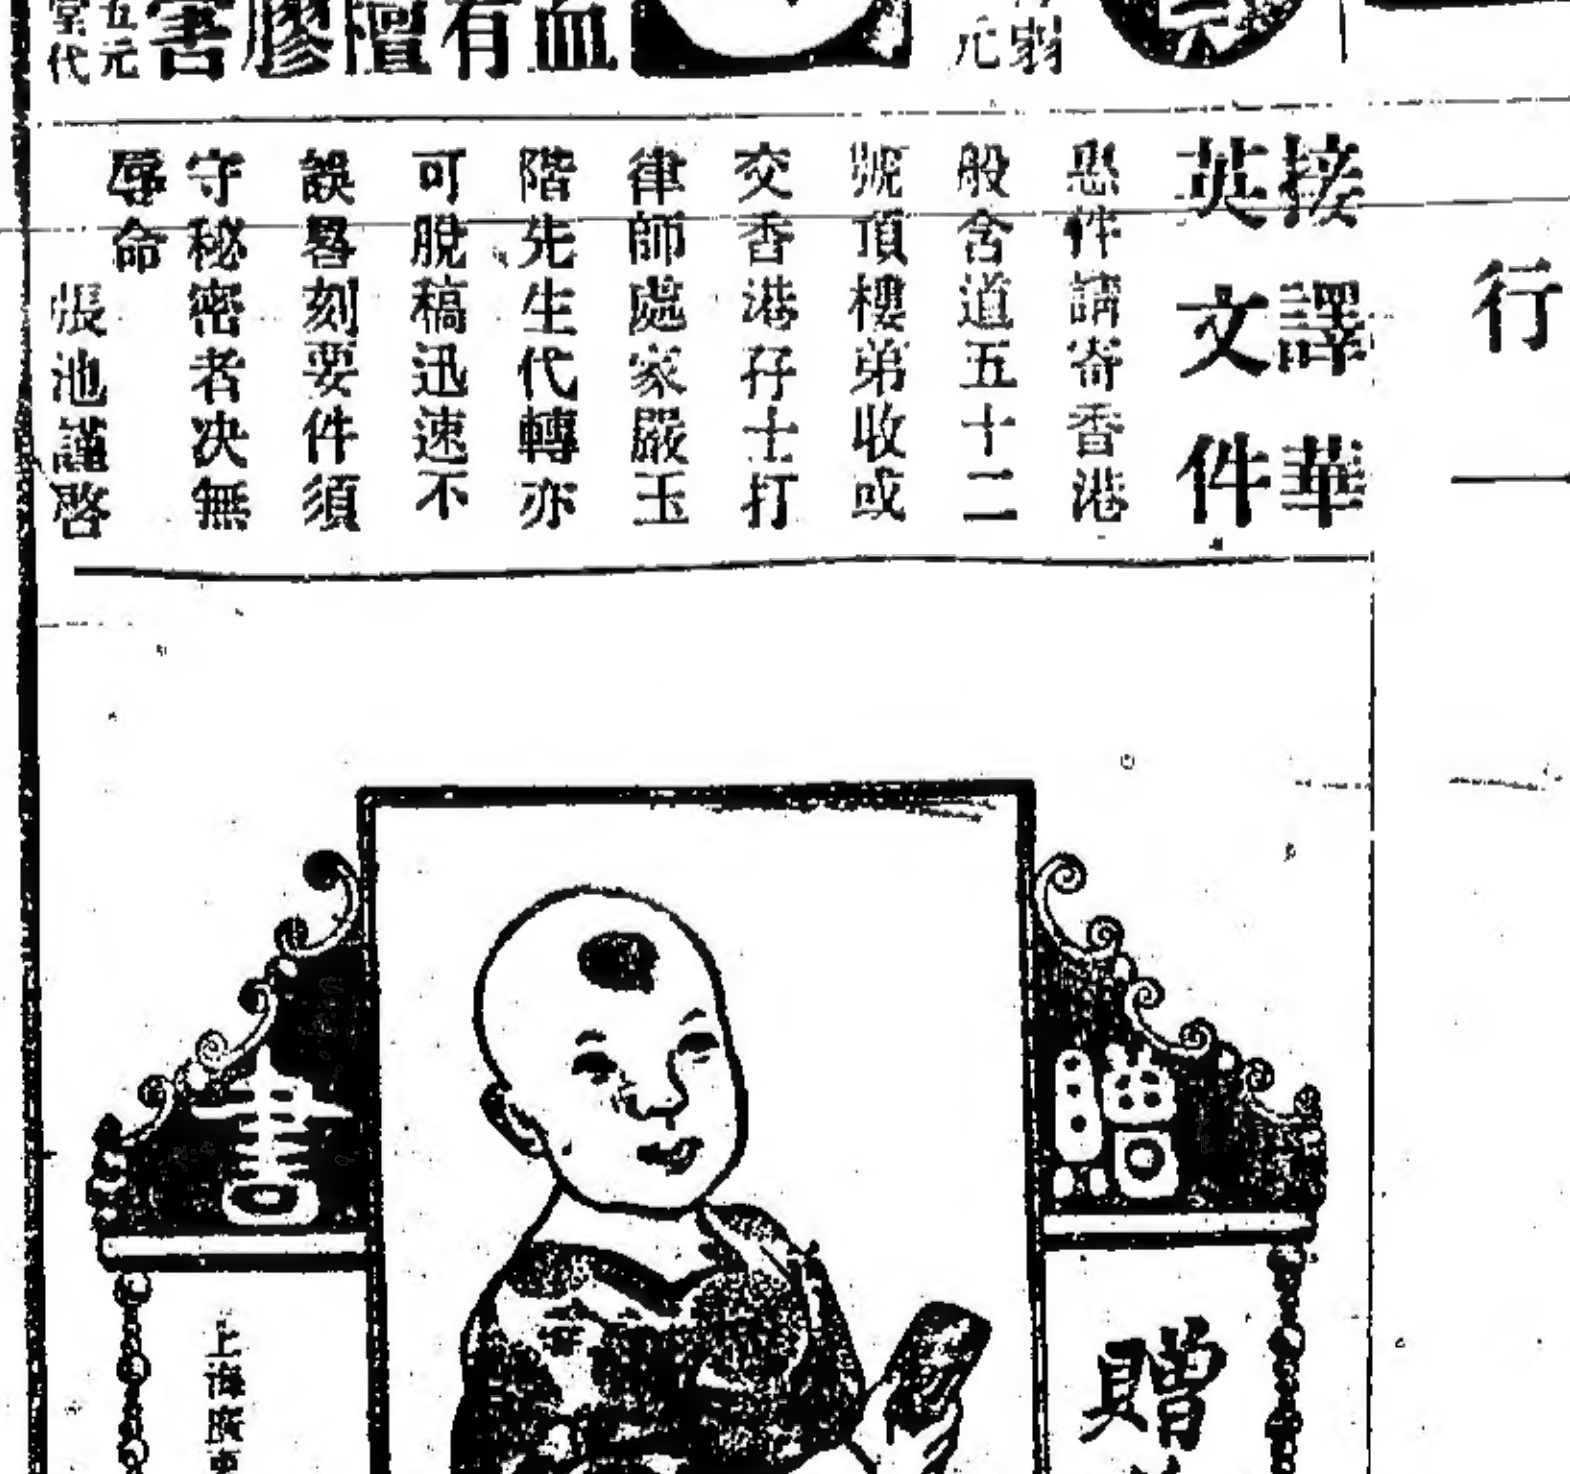 血
有
檀
膠
害
五元
堂代
弱
元
行一
接譯華
英文件
惠件請寄香港
般含道五十二
號頂樓弟收或
交香港孖士打
律師處家嚴玉
階先生代轉亦
可脫稿迅速不
誤畧刻要件須
守秘密者决無
辱命
張池謹啓
贈
書
上海廣東